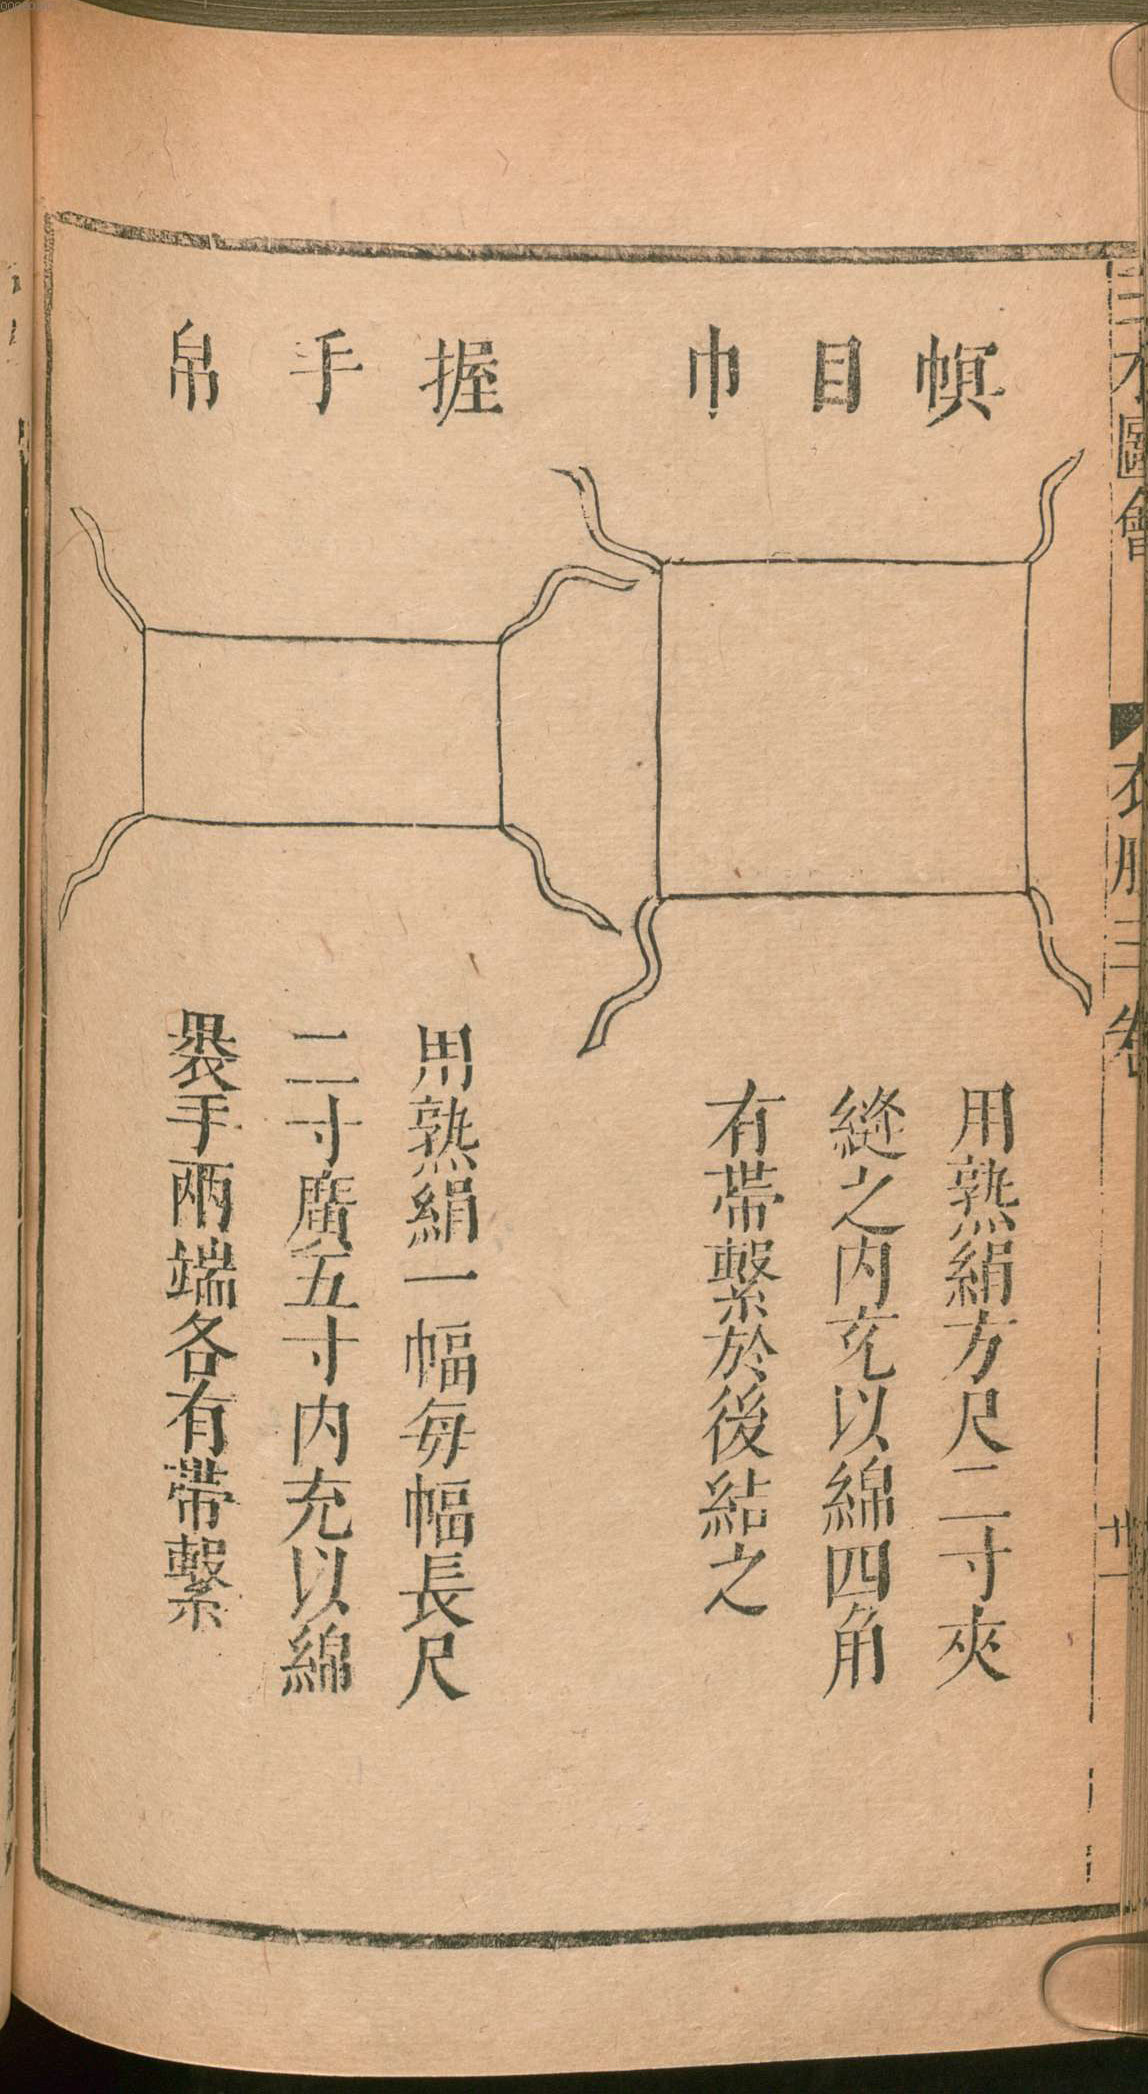 三才圖會
衣服三卷
廿一
幎目巾
用熟絹方尺二寸夾
縫之内充以綿四角
有帶繫於後結之
握手帛
用熟絹一幅每幅長尺
二寸廣五寸内充以綿
褁手兩端各有帶繫